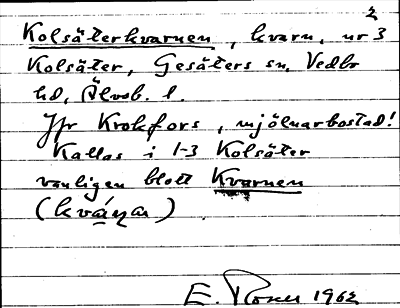 2
Kolsäterkvarnen, kvarn, nr 3
Kolsäter, Gesäters sn, Vedbo
hd, Älvsb. l.
Jfr Krokfors, mjölnarbostad!
Kallas i 1-3 Kolsäter
vanligen blott Kvarnen
(kváṇa)
E. 1962